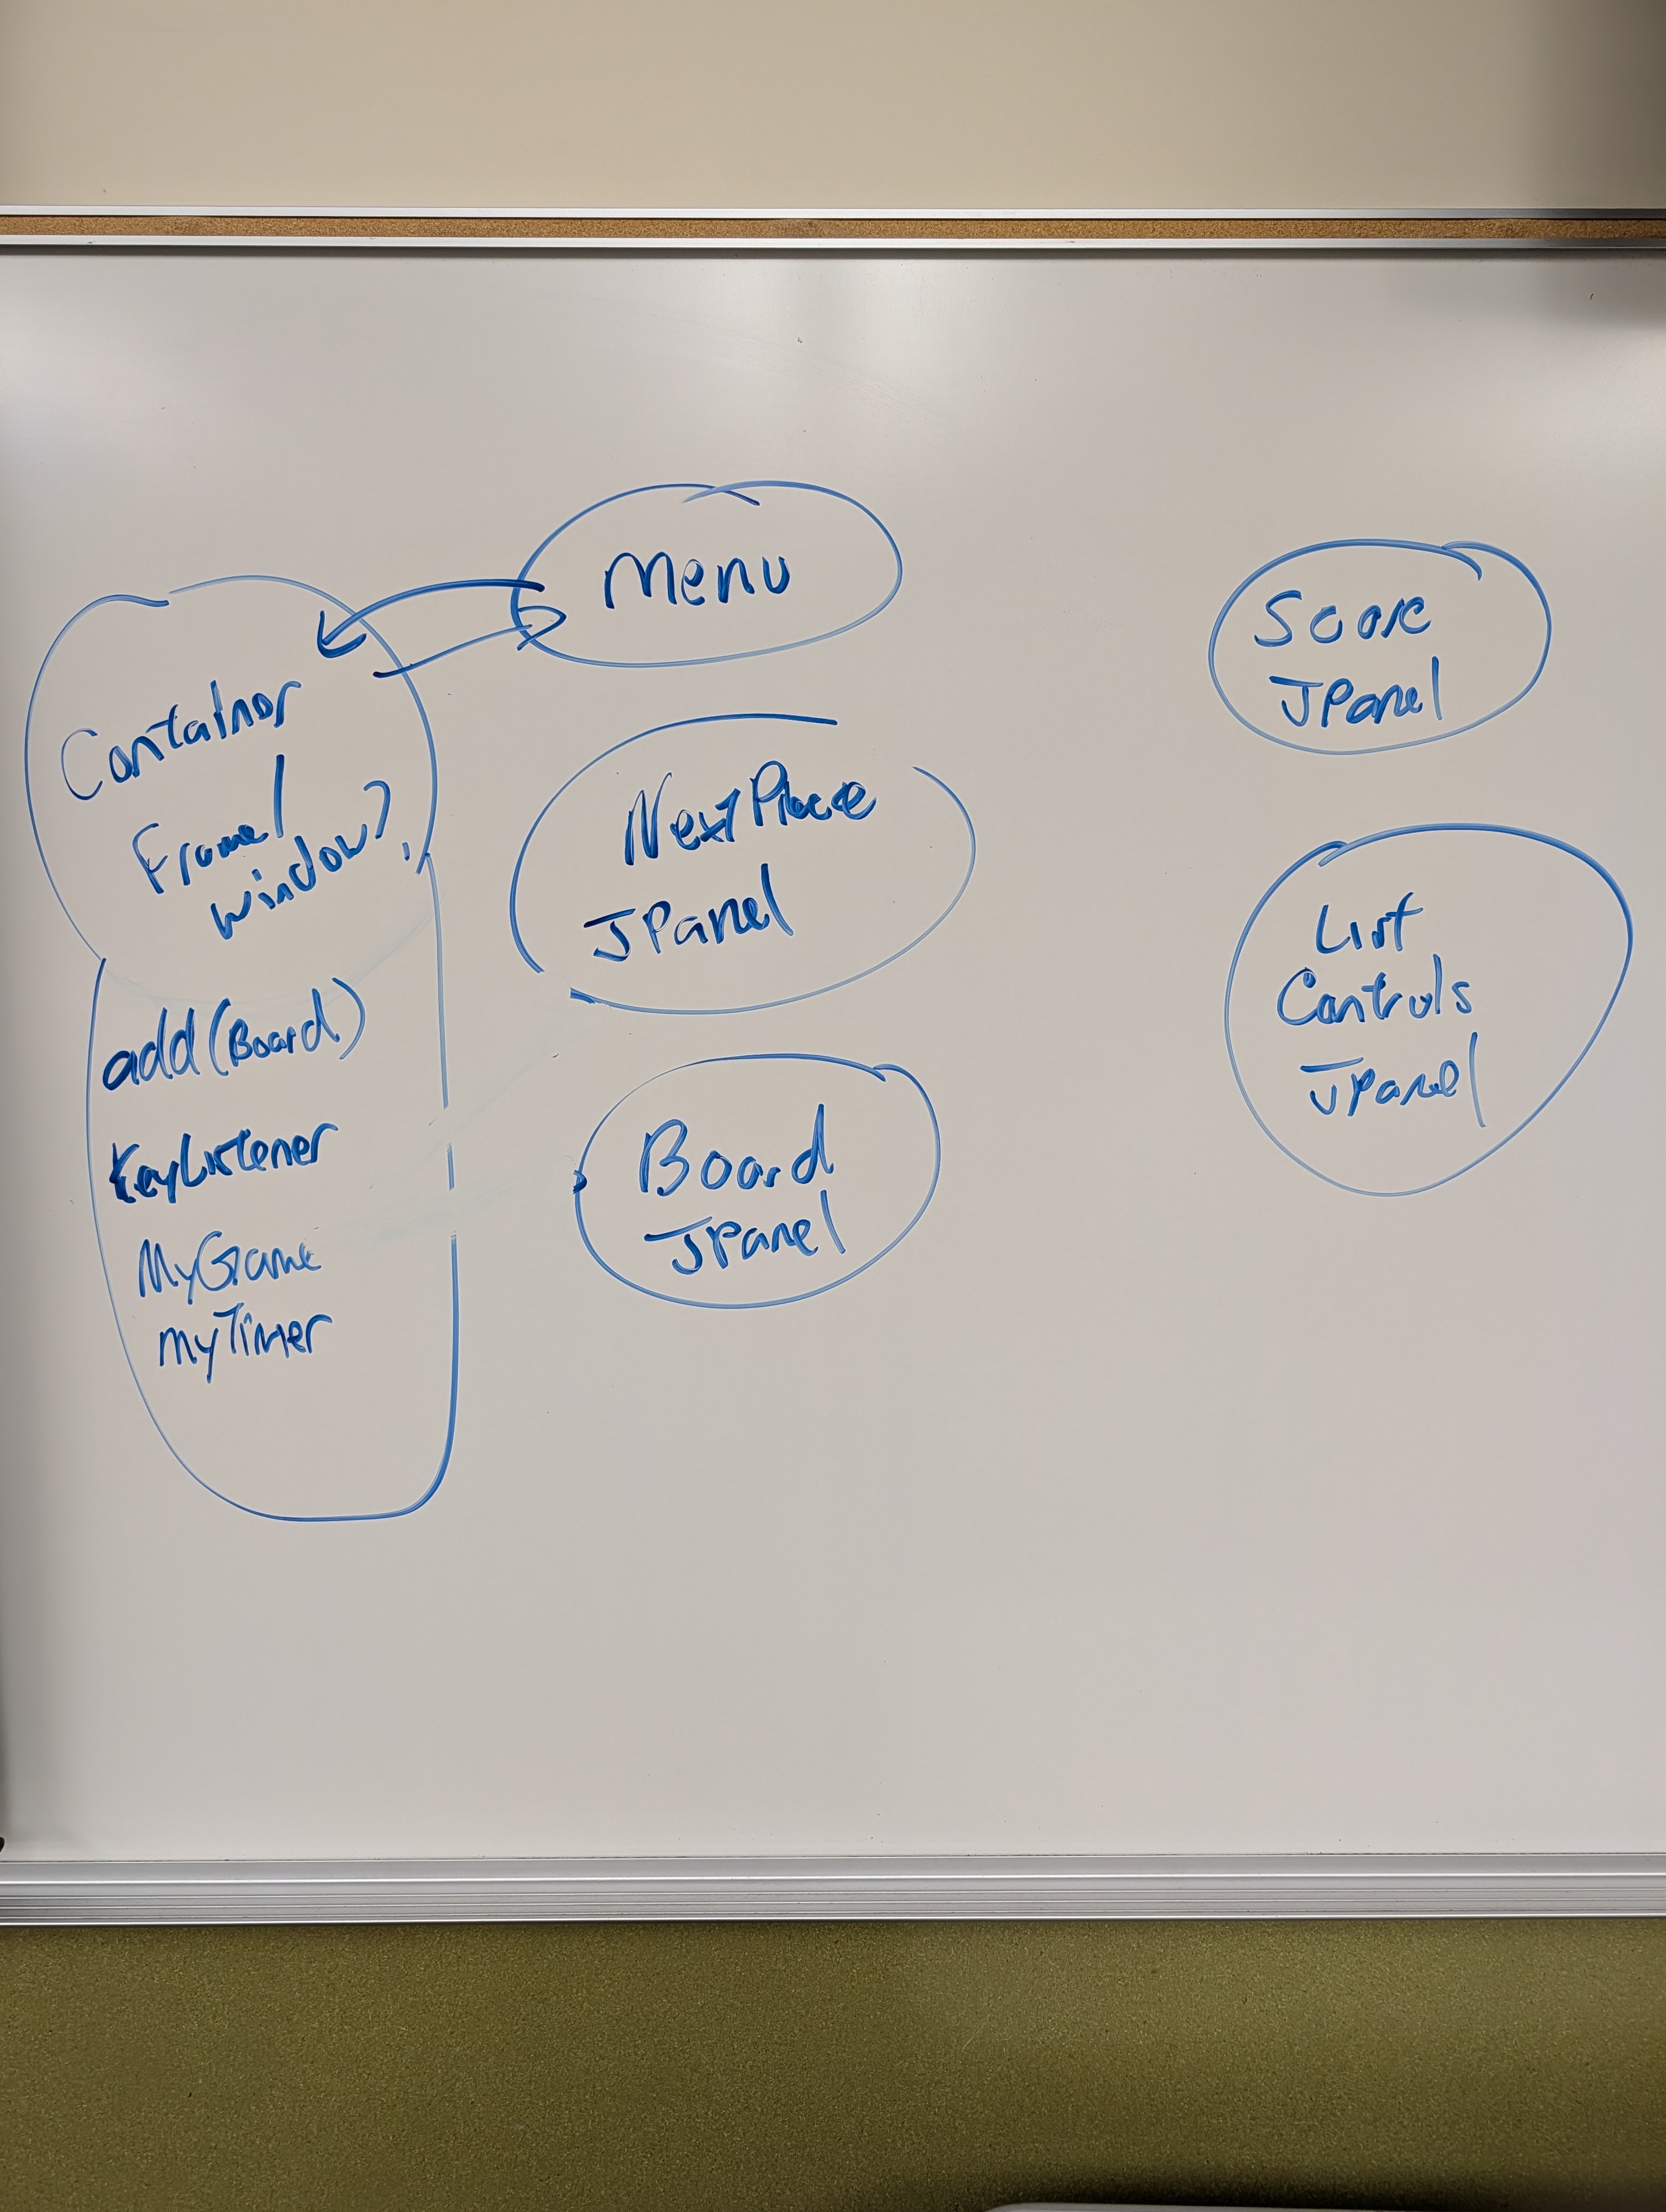 Menu
Container
Frame/
window?
add(Board)
KeyListener
MyGame
myTimer
Next Piece
JPanel
Board
JPanel
Score
JPanel
List
Controls
JPanel